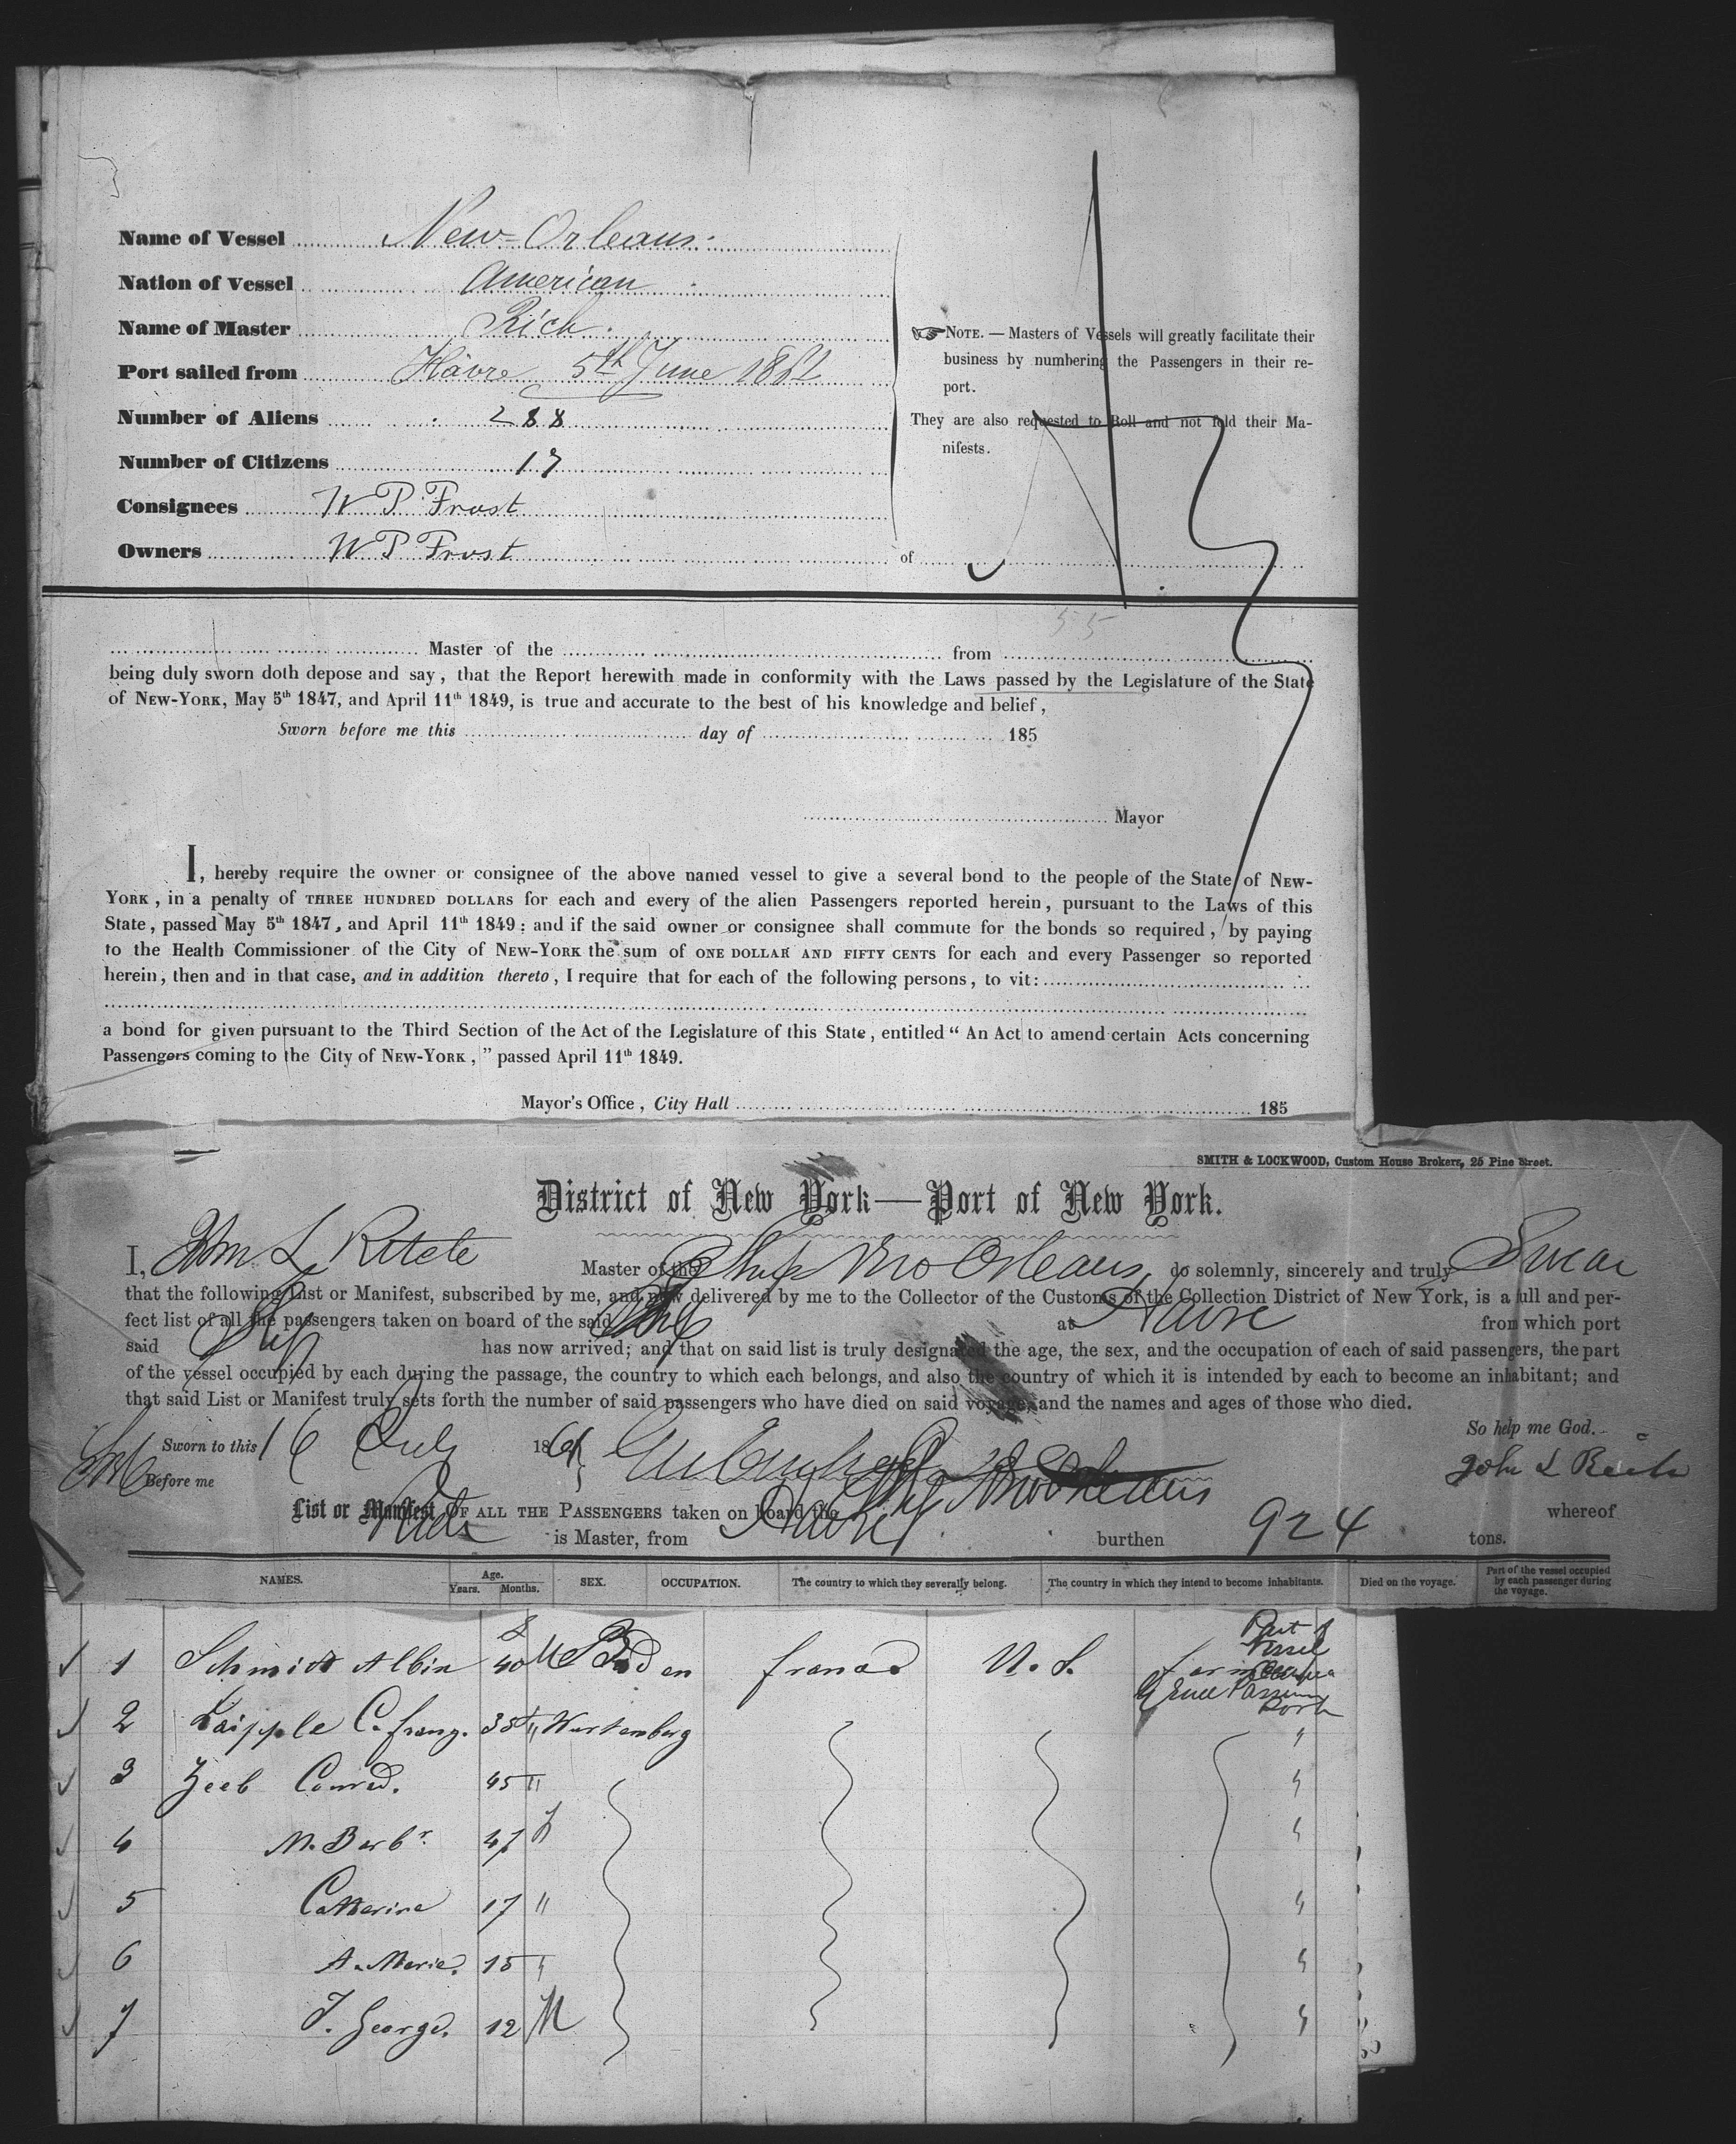 Name of Vessel New-Orleans
Nation of Vessel American
Name of Master Rich.
Port sailed from Havre 5th June 1861
Number of Aliens 288
Number of Citizens 17
Consignees W P Frost
Owners W P Frost
NOTE. — Masters of Vessels will greatly facilitate their
business by numbering the Passengers in their re-
port.
They are also requested to Roll and not fold their Ma-
nifests.
of
55
Master of the from
being duly sworn doth depose and say, that the Report herewith made in conformity with the Laws passed by the Legislature of the State
of NEW-YORK, May 5th 1847, and April 11th 1849, is true and accurate to the best of his knowledge and belief,
Sworn before me this day of 185
Mayor
I, hereby require the owner or consignee of the above named vessel to give a several bond to the people of the State of NEW-
YORK, in a penalty of THREE HUNDRED DOLLARS for each and every of the alien Passengers reported herein, pursuant to the Laws of this
State, passed May 5th 1847, and April 11th 1849: and if the said owner or consignee shall commute for the bonds so required, by paying
to the Health Commissioner of the City of NEW-YORK the sum of ONE DOLLAR AND FIFTY CENTS for each and every Passenger so reported
herein, then and in that case, and in addition thereto, I require that for each of the following persons, to vit:
a bond for given pursuant to the Third Section of the Act of the Legislature of this State, entitled “ An Act to amend certain Acts concerning
Passengers coming to the City of NEW-YORK, ” passed April 11th 1849.
Mayor's Office, City Hall 185
SMITH & LOCKWOOD, Custom House Brokers, 25 Pine Street.
District of New York—Port of New York.
I, Master of the Ship New Orleans do solemnly, sincerely and truly Swear
that the following List or Manifest, subscribed by me, and now delivered by me to the Collector of the Customs of the Collection District of New York, is a full and per-
fect list of all the passengers taken on board of the said Ship at Havre from which port
said Ship has now arrived; and that on said list is truly designated the age, the sex, and the occupation of each of said passengers, the part
of the vessel occupied by each during the passage, the country to which each belongs, and also the country of which it is intended by each to become an inhabitant; and
that said List or Manifest truly sets forth the number of said passengers who have died on said voyage, and the names and ages of those who died.
So help me God.
Sworn to this 16 July 1861
Before me
List or Manifest OF ALL THE PASSENGERS taken on board the Ship New Orleans whereof
is Master, from Havre burthen 924 tons.
NAMES. Age. Years. Months. SEX. OCCUPATION. The country to which they severally belong. The country in which they intend to become inhabitants. Died on the voyage. Part of the vessel occupied by each passenger during the voyage.
1 Schmidt Albin 40 M Baden france U. S.
2 Laipple C. franz. 35 " Wurtemberg "
3 Zeeb Conrad. 45 " "
4 M. Barbr. 47 f "
5 Catherine 17 " "
6 A. Marie. 15 " "
7 J. George. 12 M "